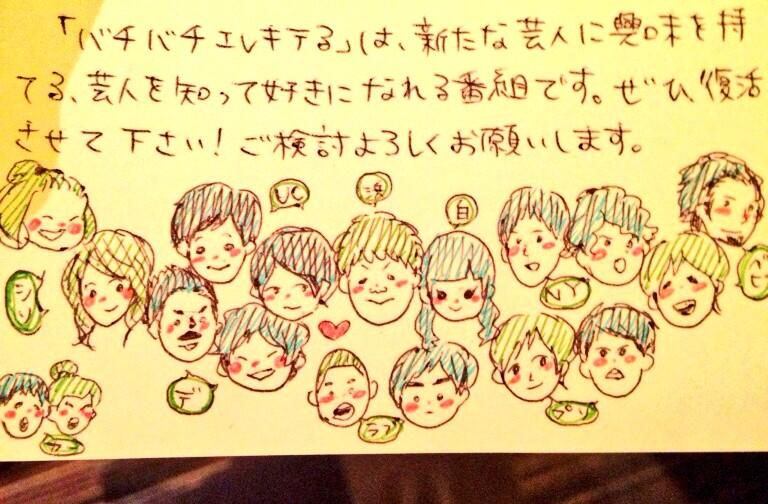 「バチバチエレキテる」は、新たな芸人に興味を持
てる、芸人を知って好きになれる番組です。ぜひ、復活
させて下さい！ご検討よろしくお願いします。
浜
自
デ
ラフ